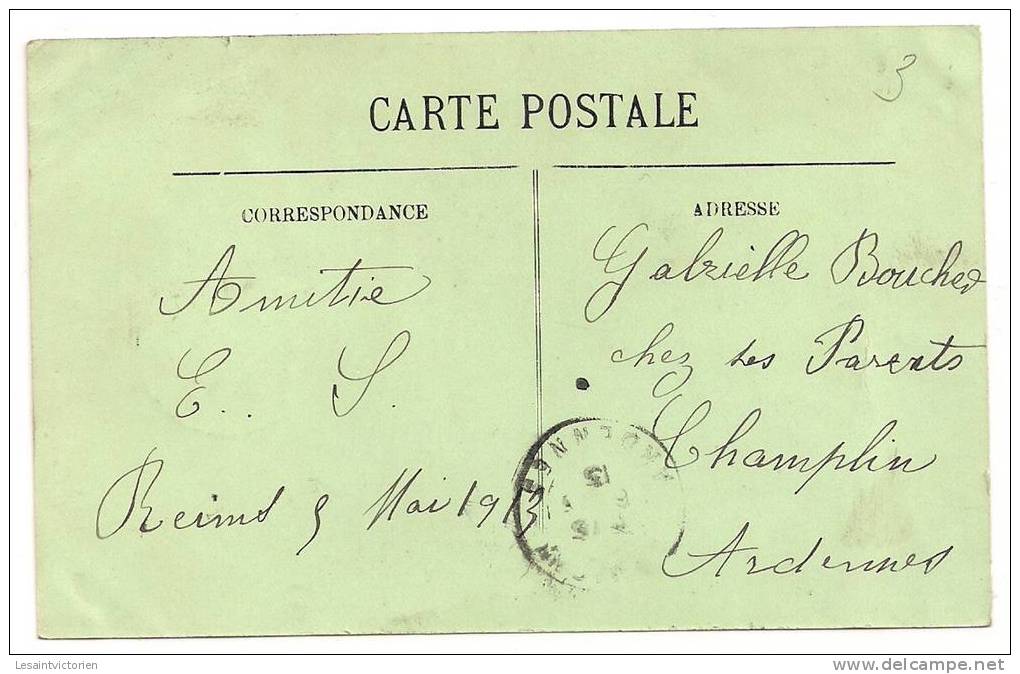 3
CARTE POSTALE
CORRESPONDANCE
Amitie
E.. S.
Reims 5 Mai 1913
ADRESSE
Gabrielle Boucher
chez ses Parents
Champlin
Ardennes
Lesaintvictorien
www.delcampe.net